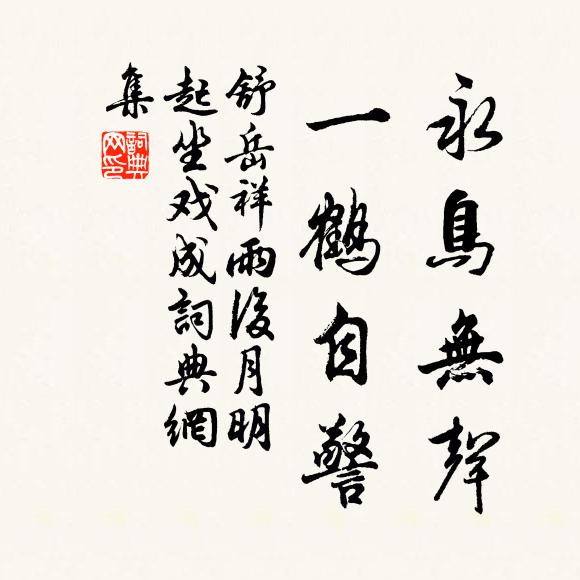 永鳥無聲
一鶴自警
舒岳祥雨後月明
起坐戏成詞典網
集
詞典網印